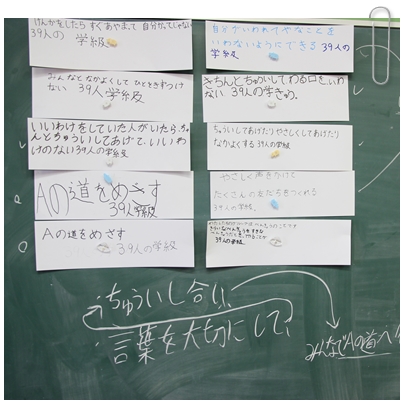 けんかをしたらすぐあやまって
39人の学級
みんなとなかよくしてひとをきずつけ
ない 39人学級
いいわけをしていた人がいたら、ちゃ
んとちゅういしてあげて、いいわ
けのない39人の学級
Aの道をめざす
39人学級
Aの道をめざす
39人の学級
自分がいわれていやなことを
いわないようにできる 39人の
学級
きちんとちゅういしてわる口をいわ
ない 39人の学きゅう。
ちゅういしてあげたりやさしくしてあげたり
なかよくする 39人の学級
やさしく声をかけて
たくさんの友だちをつくれる
39人の学級。
39人の学級。
ちゅういし合い、
言葉を大切にして、
みんなでAの道へ